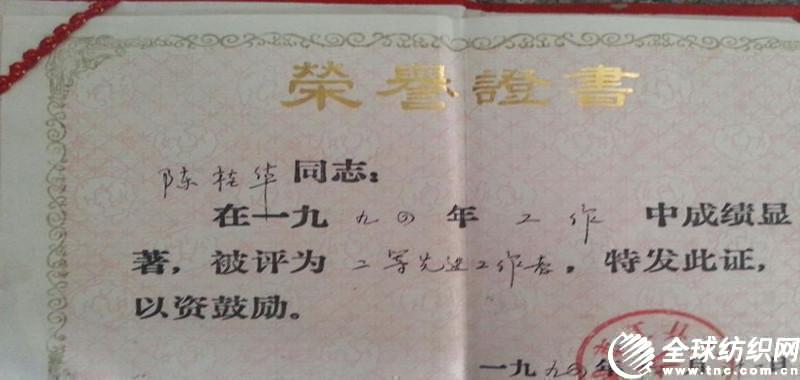 榮譽證書
陈桂华同志：
在一九九四年工作中成绩显
著，被评为二等先进工作者，特发此证，
以资鼓励。
一九九四年
全球纺织网
www.tnc.com.cn